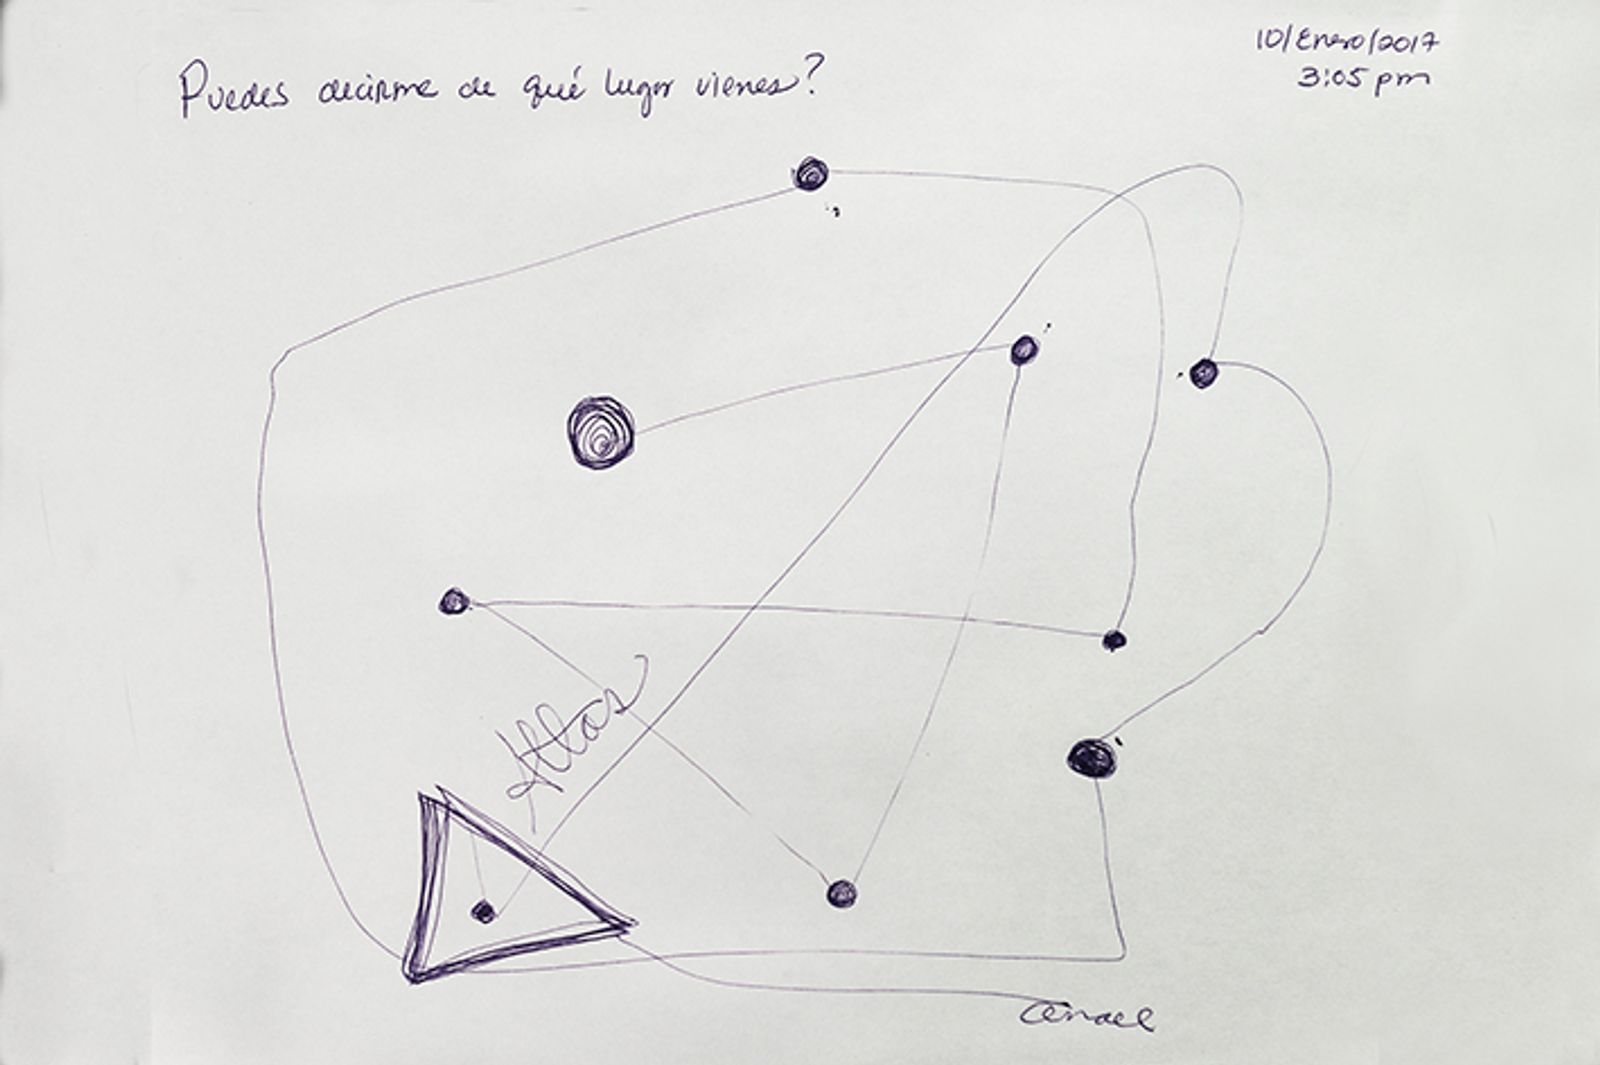 10/Enero/2017
3:05 pm
Puedes decirme de qué lugar vienes?